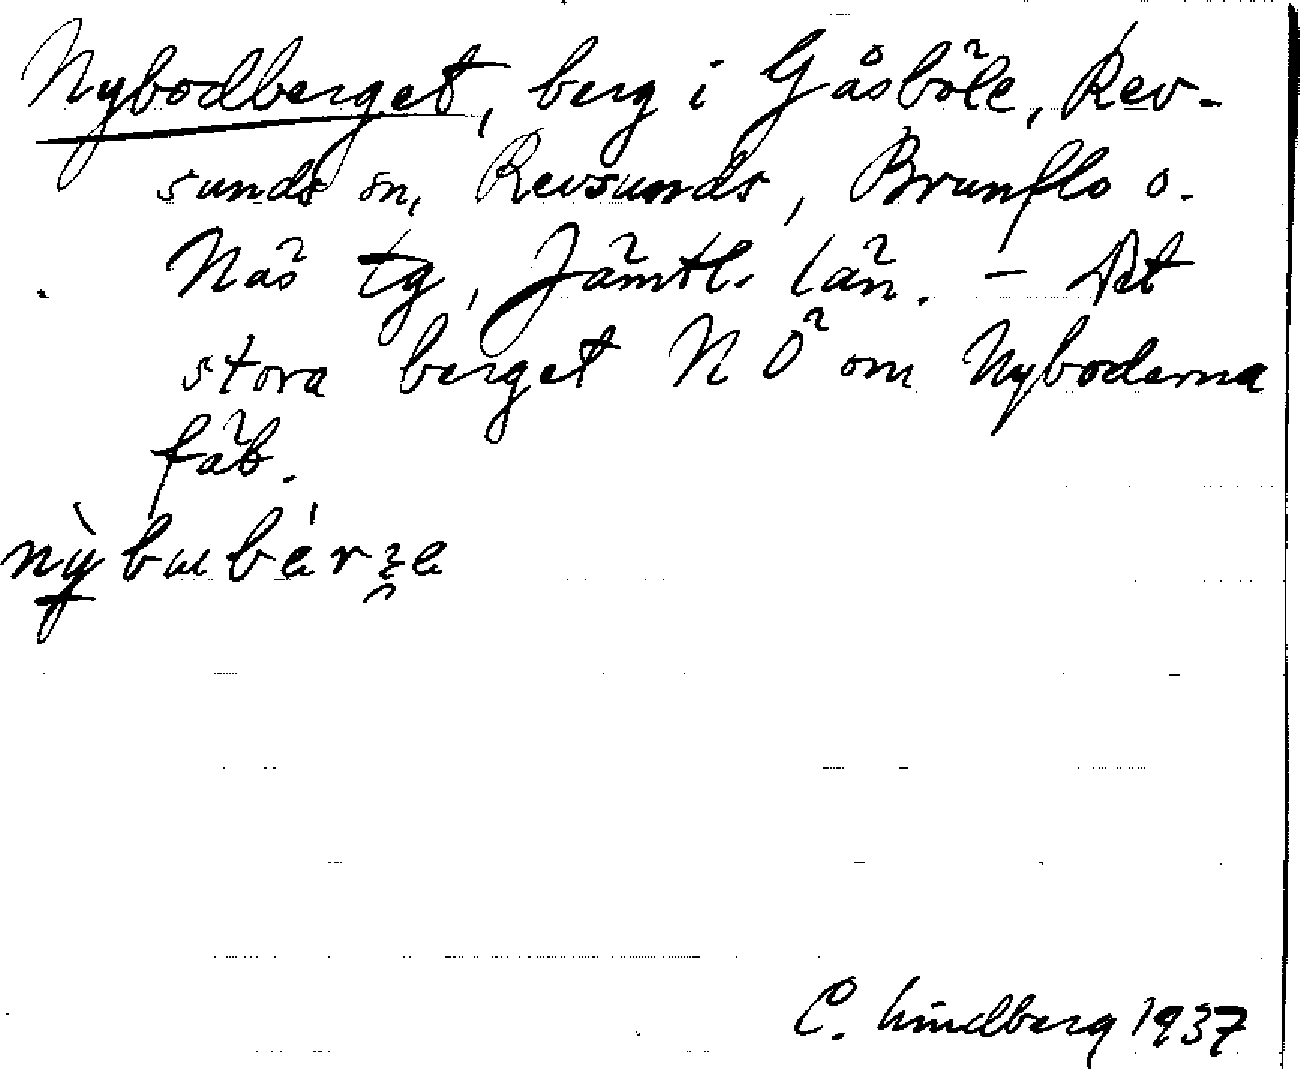 Nybodberget, berg i Gåsböle, Rev-
sunds sn, Revsunds, Brunflo o.
Näs tg, Jämtl. län. – Det
stora berget N Ö om Nyboderna
fäb.
C. Lindberg 1937